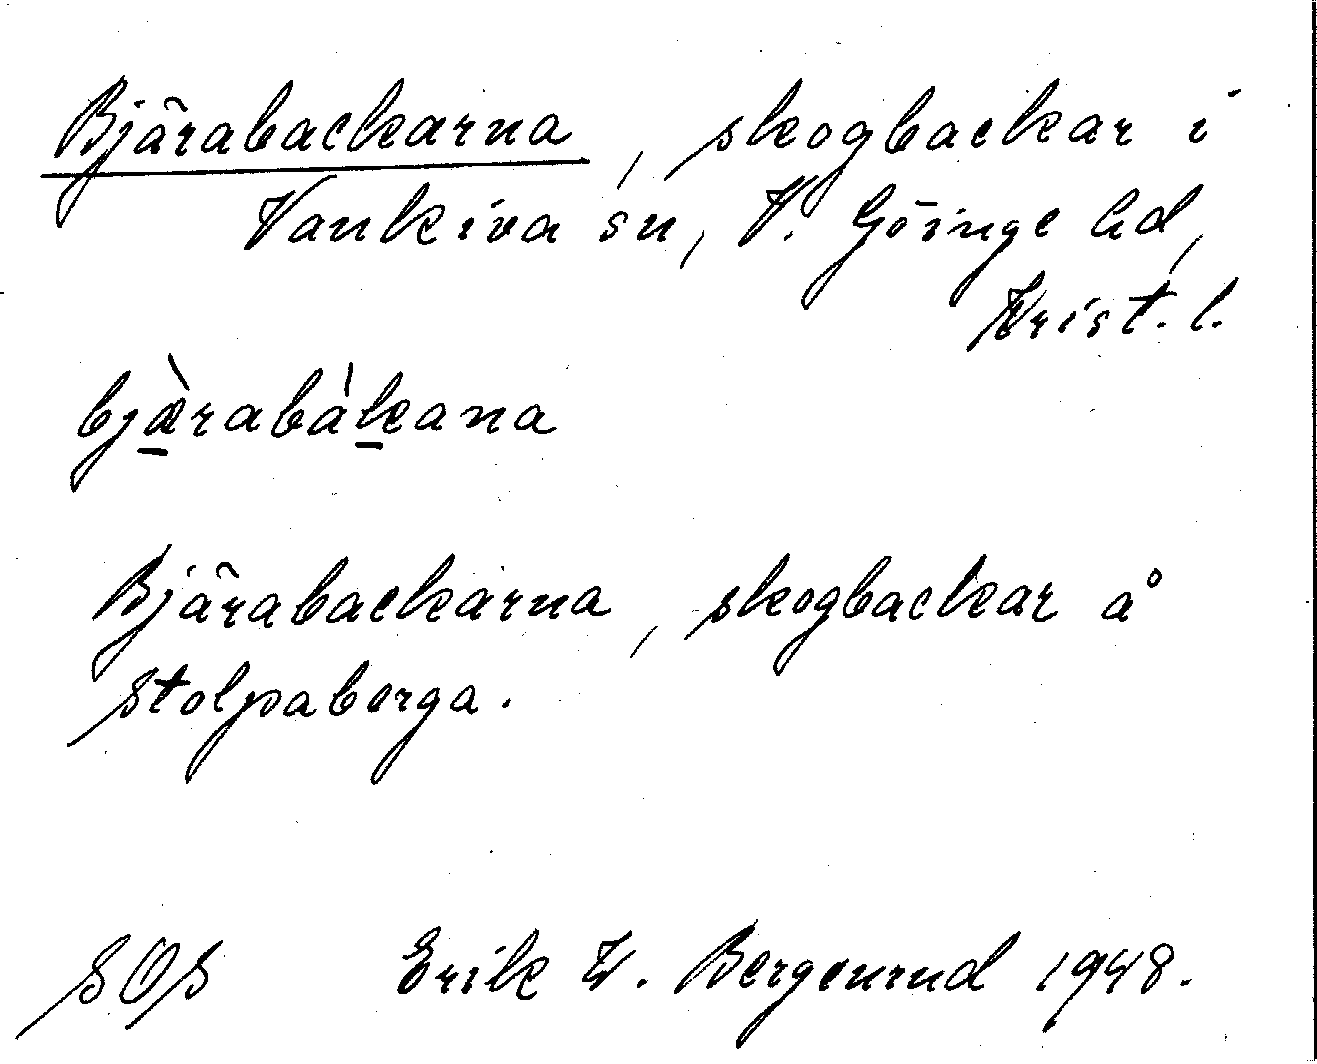 Bjärabackarna, skogbackar i
Vankiva sn, V. Göinge hd,
Krist. l.
bjæ̀rabàkana
Bjärabackarna, skogbackar å
Stolpaberga.
SOS Erik W. Bergenrud 1948.